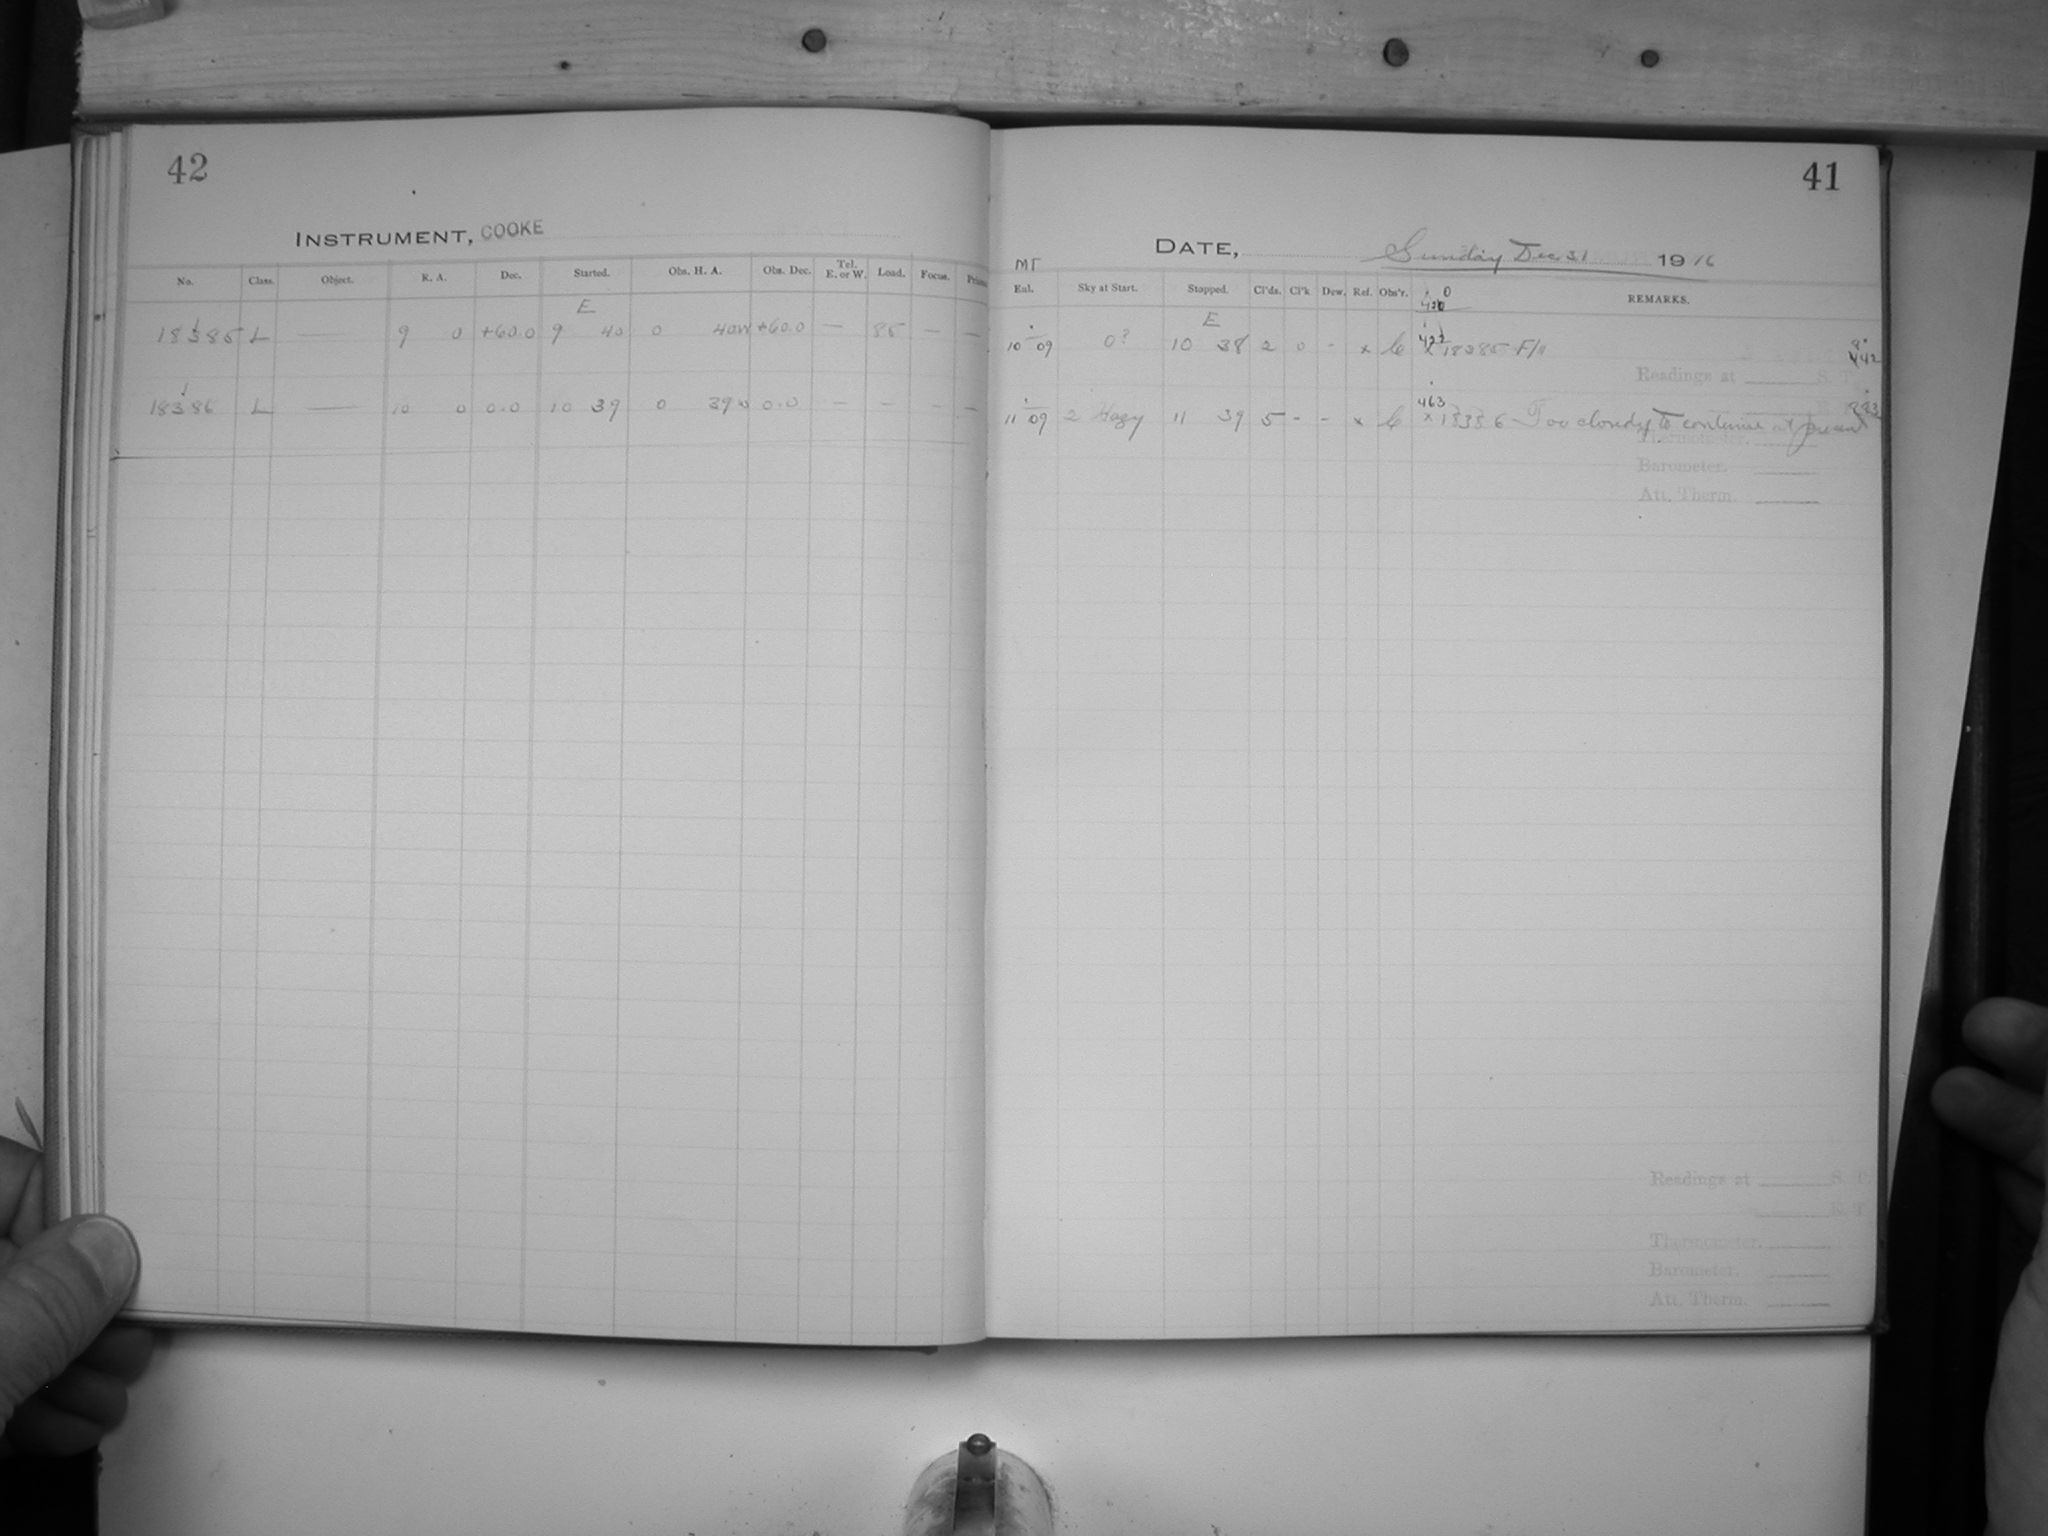 42
INSTRUMENT, COOKE
No. Class. Object. R. A. Dec. Started. Obs. H. A. Obs. Dec. Tel. E. or W. Load. Focus.
E
18385 L — 9 0 +60.0 9 40 0 40W +60.0 — 85 — —
18386 L — 10 0 0.0 10 39 0 39W 0.0 — - - —
41
DATE, Sunday Dec 31 1916
MT
Eql. Sky at Start. Stopped. Cl'ds. Cl'k Dew. Ref. Obs'r. REMARKS.
E
10 09 0? 10 38 2 0 - x C 422 x 18385 F/11 442
Readings at S. T.
11 09 2 Hazy 11 39 5 - - x C 463 x 18386 Too cloudy to continue at present
Thermometer.
Barometer.
Att. Therm.
Readings at S. T.
Thermometer.
Barometer.
Att. Therm.